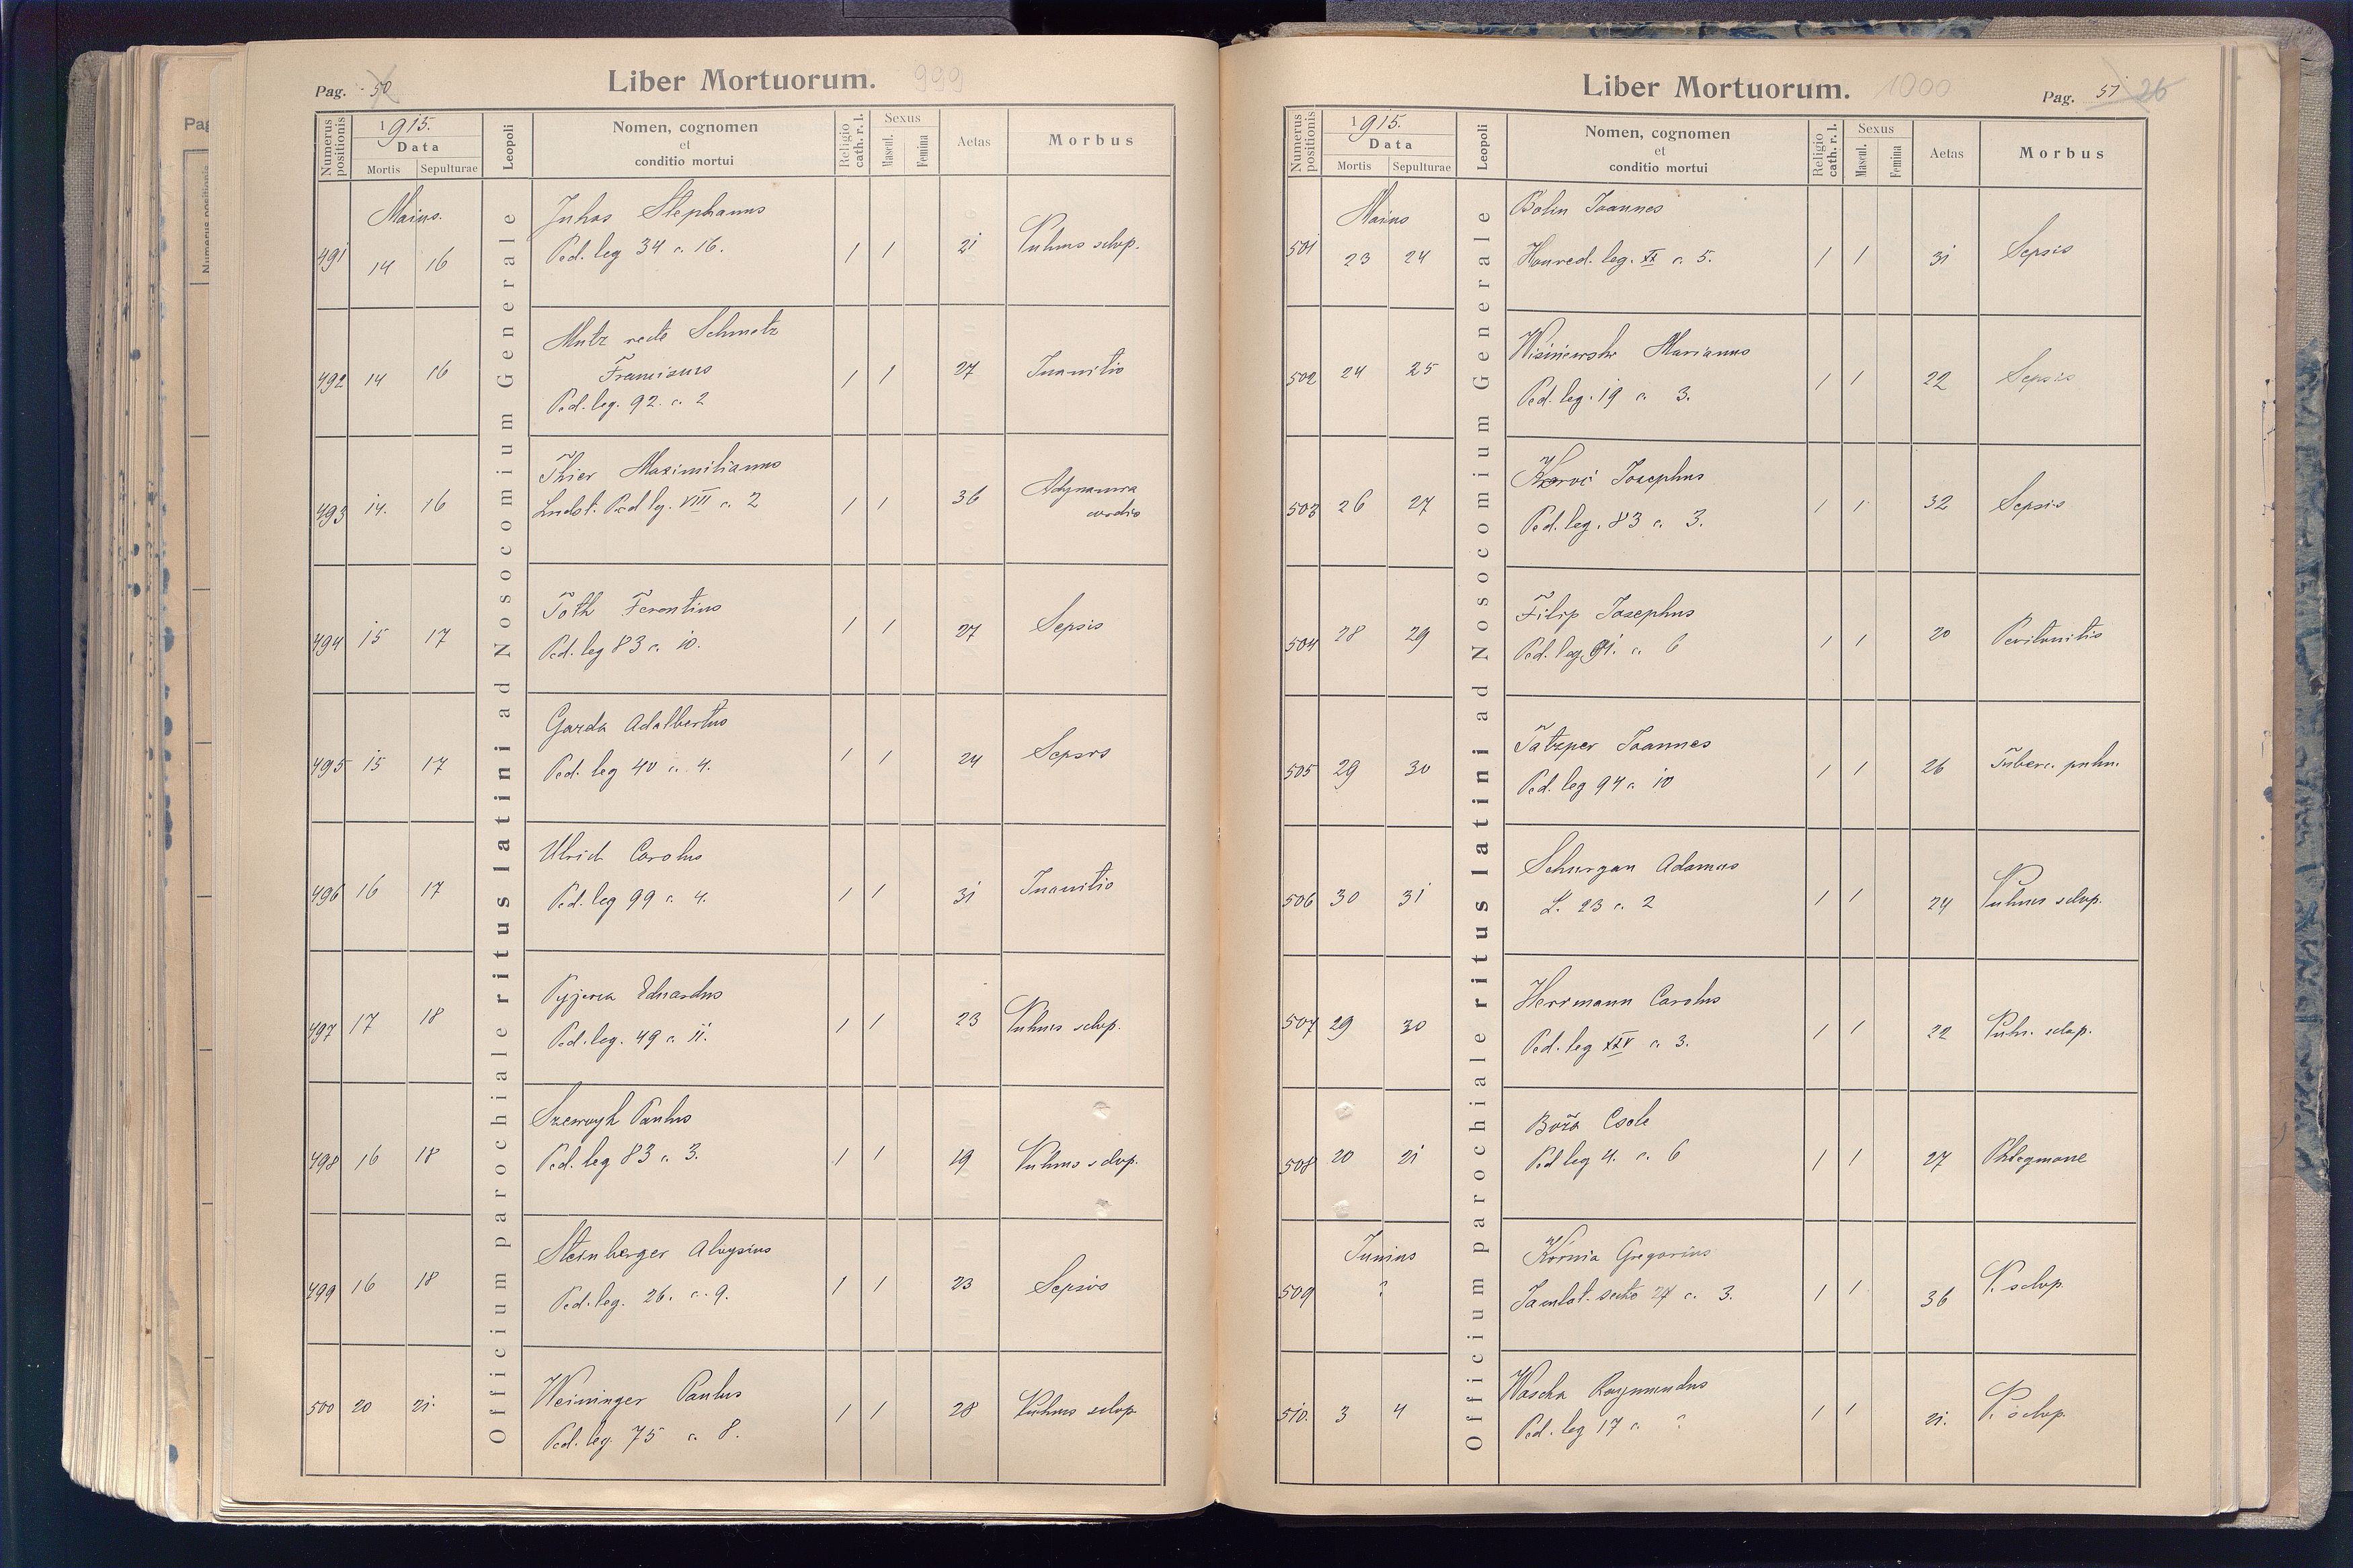 Pag. 50
Liber Mortuorum. 999
Numerus positionis
1915.
Data
Mortis Sepulturae
Leopoli
Nomen, cognomen
et
conditio mortui
Religio cath. r. l.
Sexus
Mascul. Femina
Aetas
Morbus
Officium parochiale ritus latini ad Nosocomium Generale
Maius.
Juhas Stephanus
491 14 16 Ped. leg 34 c. 16. 1 1 21 Vulnus sclop.
Mutz recte Schmetz
Franciscus
492 14 16 Ped. leg. 92. c. 2 1 1 27 Inanitio
Thier Maximilianus
493 14. 16 Lndst. Ped leg. VIII c. 2 1 1 36 Adynamia
cordis
Toth Ferentius
494 15 17 Ped. leg 83 c. 10. 1 1 27 Sepsis
Garda Adalbertus
495 15 17 Ped. leg 40 c. 4. 1 1 24 Sepsis
Ulrich Carolus
496 16 17 Ped. leg 99 c. 4. 1 1 31 Inanitio
Eduardus
497 17 18 Ped. leg. 49 c. 11. 1 1 23 Vulnus sclop.
Paulus
498 16 18 Ped. leg 83 c. 3. 1 1 19 Vulnus sclop.
Steinberger Aloysius
499 16 18 Ped. leg. 26. c. 9. 1 1 23 Sepsis
Weininger Paulus
500 20 21. Ped. leg. 75 c. 8. 1 1 28 Vulnus sclop.
Liber Mortuorum. 1000
Pag. 51 26
Numerus positionis
1915.
Data
Mortis Sepulturae
Leopoli
Nomen, cognomen
et
conditio mortui
Religio cath. r. l.
Sexus
Mascul. Femina
Aetas
Morbus
Officium parochiale ritus latini ad Nosocomium Generale
Maius
Bolin Joannes
501 23 24 Honved. leg. XX c. 5. 1 1 31 Sepsis
Marianus
502 24 25 Ped. leg. 19 c. 3. 1 1 22 Sepsis
Josephus
503 26 27 Ped. leg. 83 c. 3. 1 1 32 Sepsis
Filip Josephus
504 28 29 Ped. leg. 91. c. 6 1 1 20 Peritonitis
Tatzper Joannes
505 29 30 Ped. leg 94 c. 10 1 1 26 Tuberc. pulm.
Schurgan Adamus
506 30 31 L. 23 c. 2 1 1 24 Vulnus sclop.
Herrmann Carolus
507 29 30 Ped. leg XXV c. 3. 1 1 22 Vuln. sclop.
508 20 21 Ped leg 4. c. 6 1 1 27 Phlegmone
Junius
Kornia Gregorius
509 ? 27 c. 3. 1 1 36 V. sclop
Wascha Raymundus
510. 3 4 Ped. leg 17 c. ? 1 1 21. V. sclop.